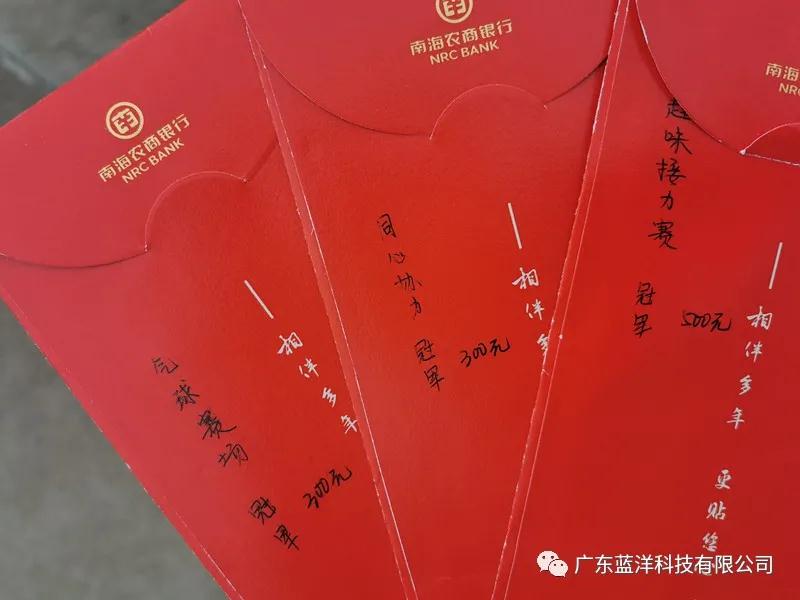 南海农商银行
NRC BANK
气球赛场
冠军 300元
相伴多年
南海农商银行
NRC BANK
同心协力
冠军 300元
相伴多
南海
NRC
趣味接力赛
冠军 500元
相伴多年
更贴您
广东蓝洋科技有限公司